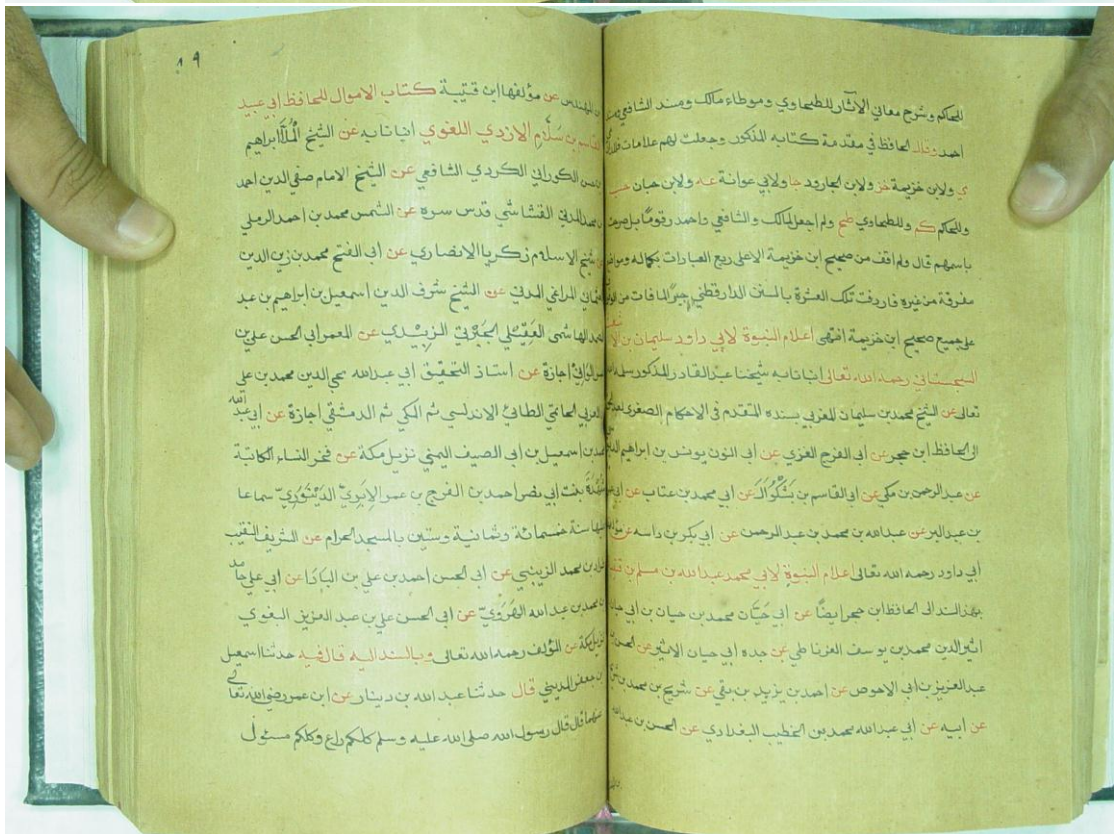 للحاكم وشرح معاني الآثار للطحاوي وموطاء مالك ومسند الشافعي
احمد وقال الحافظ في مقدمة كتابه المذكور وجعلت لهم علامات
ي ولابن خزيمة خز ولابن الجارود جا ولابي عوانة عه ولابن حبان حب
وللحاكم كم وللطحاوي طح ولم اجعل لمالك والشافعي واحمد رقوما بل
باسمهم قال ولم اقف من صحيح ابن خزيمة الا على ربع العبارات بكماله
مفرقة من غيره فاردفت تلك العشرة بالسنن الدارقطني جبرا لما فات من
على جميع صحيح ابن خزيمة انتهى اعلام النبوة لابي داود سليمان بن
السجستاني رحمه الله تعالى انبانا به شيخنا عبد القادر المذكور
تعالى عن الشيخ محمد بن سليمان المغربي بسنده المتقدم في الاحكام الصغرى
الى الحافظ ابن حجر عن ابي الفرج الغزي عن ابي النون يونس بن ابراهيم
عن عبد الرحمن بن مكي عن ابي القاسم بن بشكوال عن ابي محمد بن عتاب عن
بن عبد البر عن عبد الله بن محمد بن عبد الرحمن عن ابي بكر بن داسه عن
أبي داود رحمه الله تعالى اعلام النبوة لابي محمد عبد الله بن مسلم بن
بهذا السند الى الحافظ ابن حجر ايضا عن ابي حيان محمد بن حيان بن ابي
اثير الدين محمد بن يوسف الغرناطي عن جده ابي حيان الاثير عن
عبد العزيز بن ابي الاحوص عن احمد بن يزيد بن بقي عن شريح بن محمد بن
عن ابيه عن ابي عبد الله محمد بن الخطيب البغدادي عن الحسن بن عبد الله
٨٩
المهندس عن مؤلفها ابن قتيبة كتاب الاموال للحافظ ابي عبيد
القاسم بن سلام الازدي اللغوي انبانا به عن الشيخ الملا ابراهيم
بن حسن الكوراني الكردي الشافعي عن الشيخ الامام صفي الدين احمد
بن محمد المدني القشاشي قدس سره عن الشمس محمد بن احمد الرملي
شيخ الاسلام زكريا الانصاري عن ابي الفتح محمد بن زين الدين
المراغي المدني عن الشيخ شرف الدين اسمعيل بن ابراهيم بن عبد
الصمد الهاشمي العقيلي الجبرتي الزبيدي عن المعمر ابي الحسن علي بن
اجازة عن استاذ التحقيق ابي عبد الله محي الدين محمد بن علي
العربي الحاتمي الطائي الاندلسي ثم المكي ثم الدمشقي اجازة عن ابي عبد الله
محمد بن اسمعيل بن ابي الصيف اليمني نزيل مكة عن فخر النساء الكاتبة
شهدة بنت ابي نصر احمد بن الفرج بن عمر الابري الدينوري سماعا
عليها سنة خمسمائة وثمانية وستين بالمسجد الحرام عن الشريف النقيب
بن محمد الزينبي عن ابي الحسن احمد بن علي بن البادا عن ابي علي حامد
بن محمد بن عبد الله الهروي عن ابي الحسن علي بن عبد العزيز البغوي
نزيل مكة عن المؤلف رحمه الله تعالى وبالسند اليه قال فيه حدثنا اسمعيل
بن جعفر المديني قال حدثنا عبد الله بن دينار عن ابن عمر رضي الله تعالى
عنهما قال قال رسول الله صلى الله عليه وسلم كلكم راع وكلكم مسئول